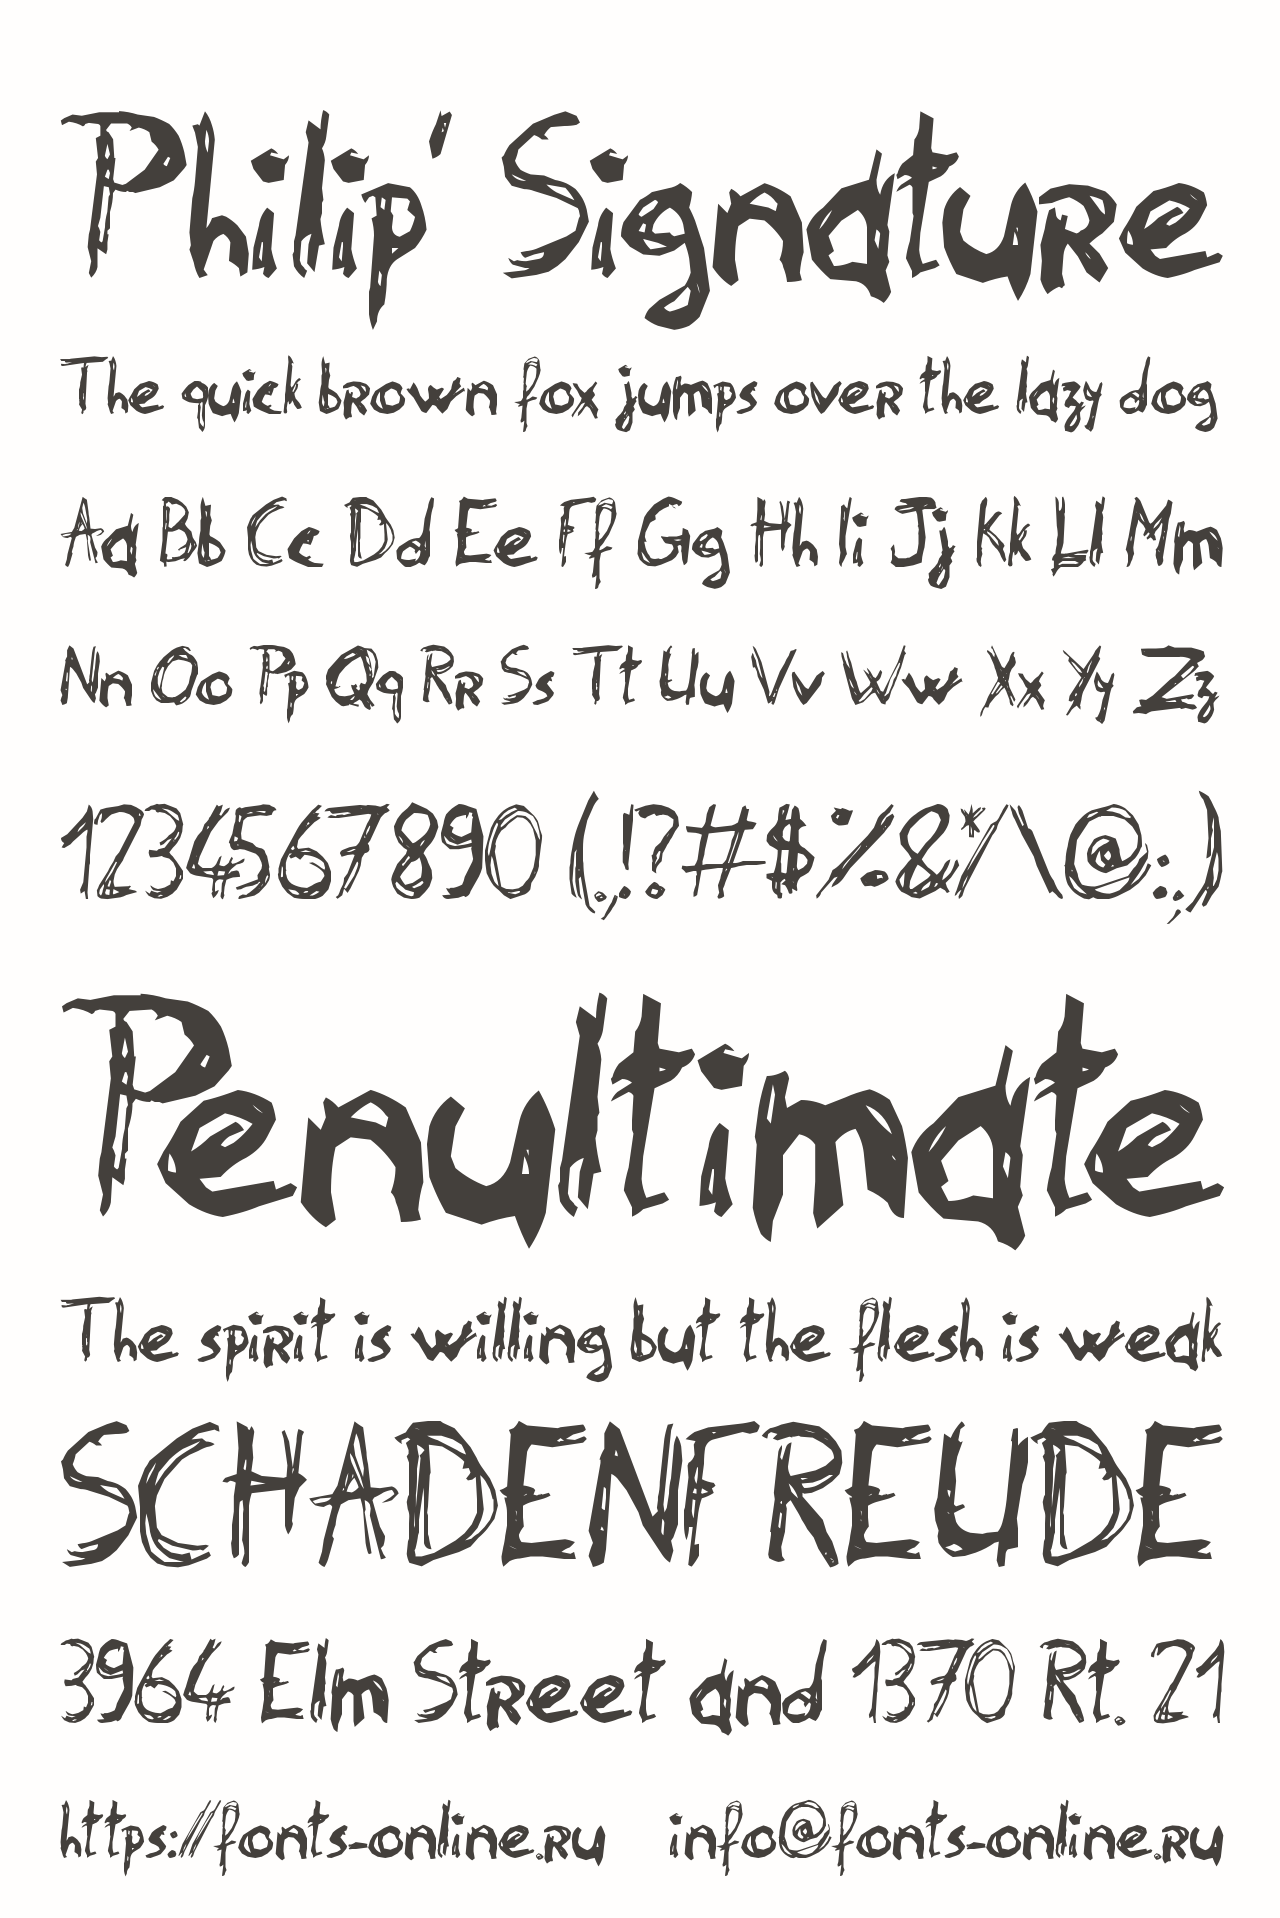 Philip' Signature
The quick brown fox jumps over the lazy dog
Aa Bb Cc Dd Ee Ff Gg Hh Ii Jj Kk Ll Mm
Nn Oo Pp Qq Rr Ss Tt Uu Vv Ww Xx Yy Zz
1234567890 (.,!?#$%&*/\@:;)
Penultimate
The spirit is willing but the flesh is weak
SCHADENFREUDE
3964 Elm Street and 1370 Rt. 21
https://fonts-online.ru info@fonts-online.ru